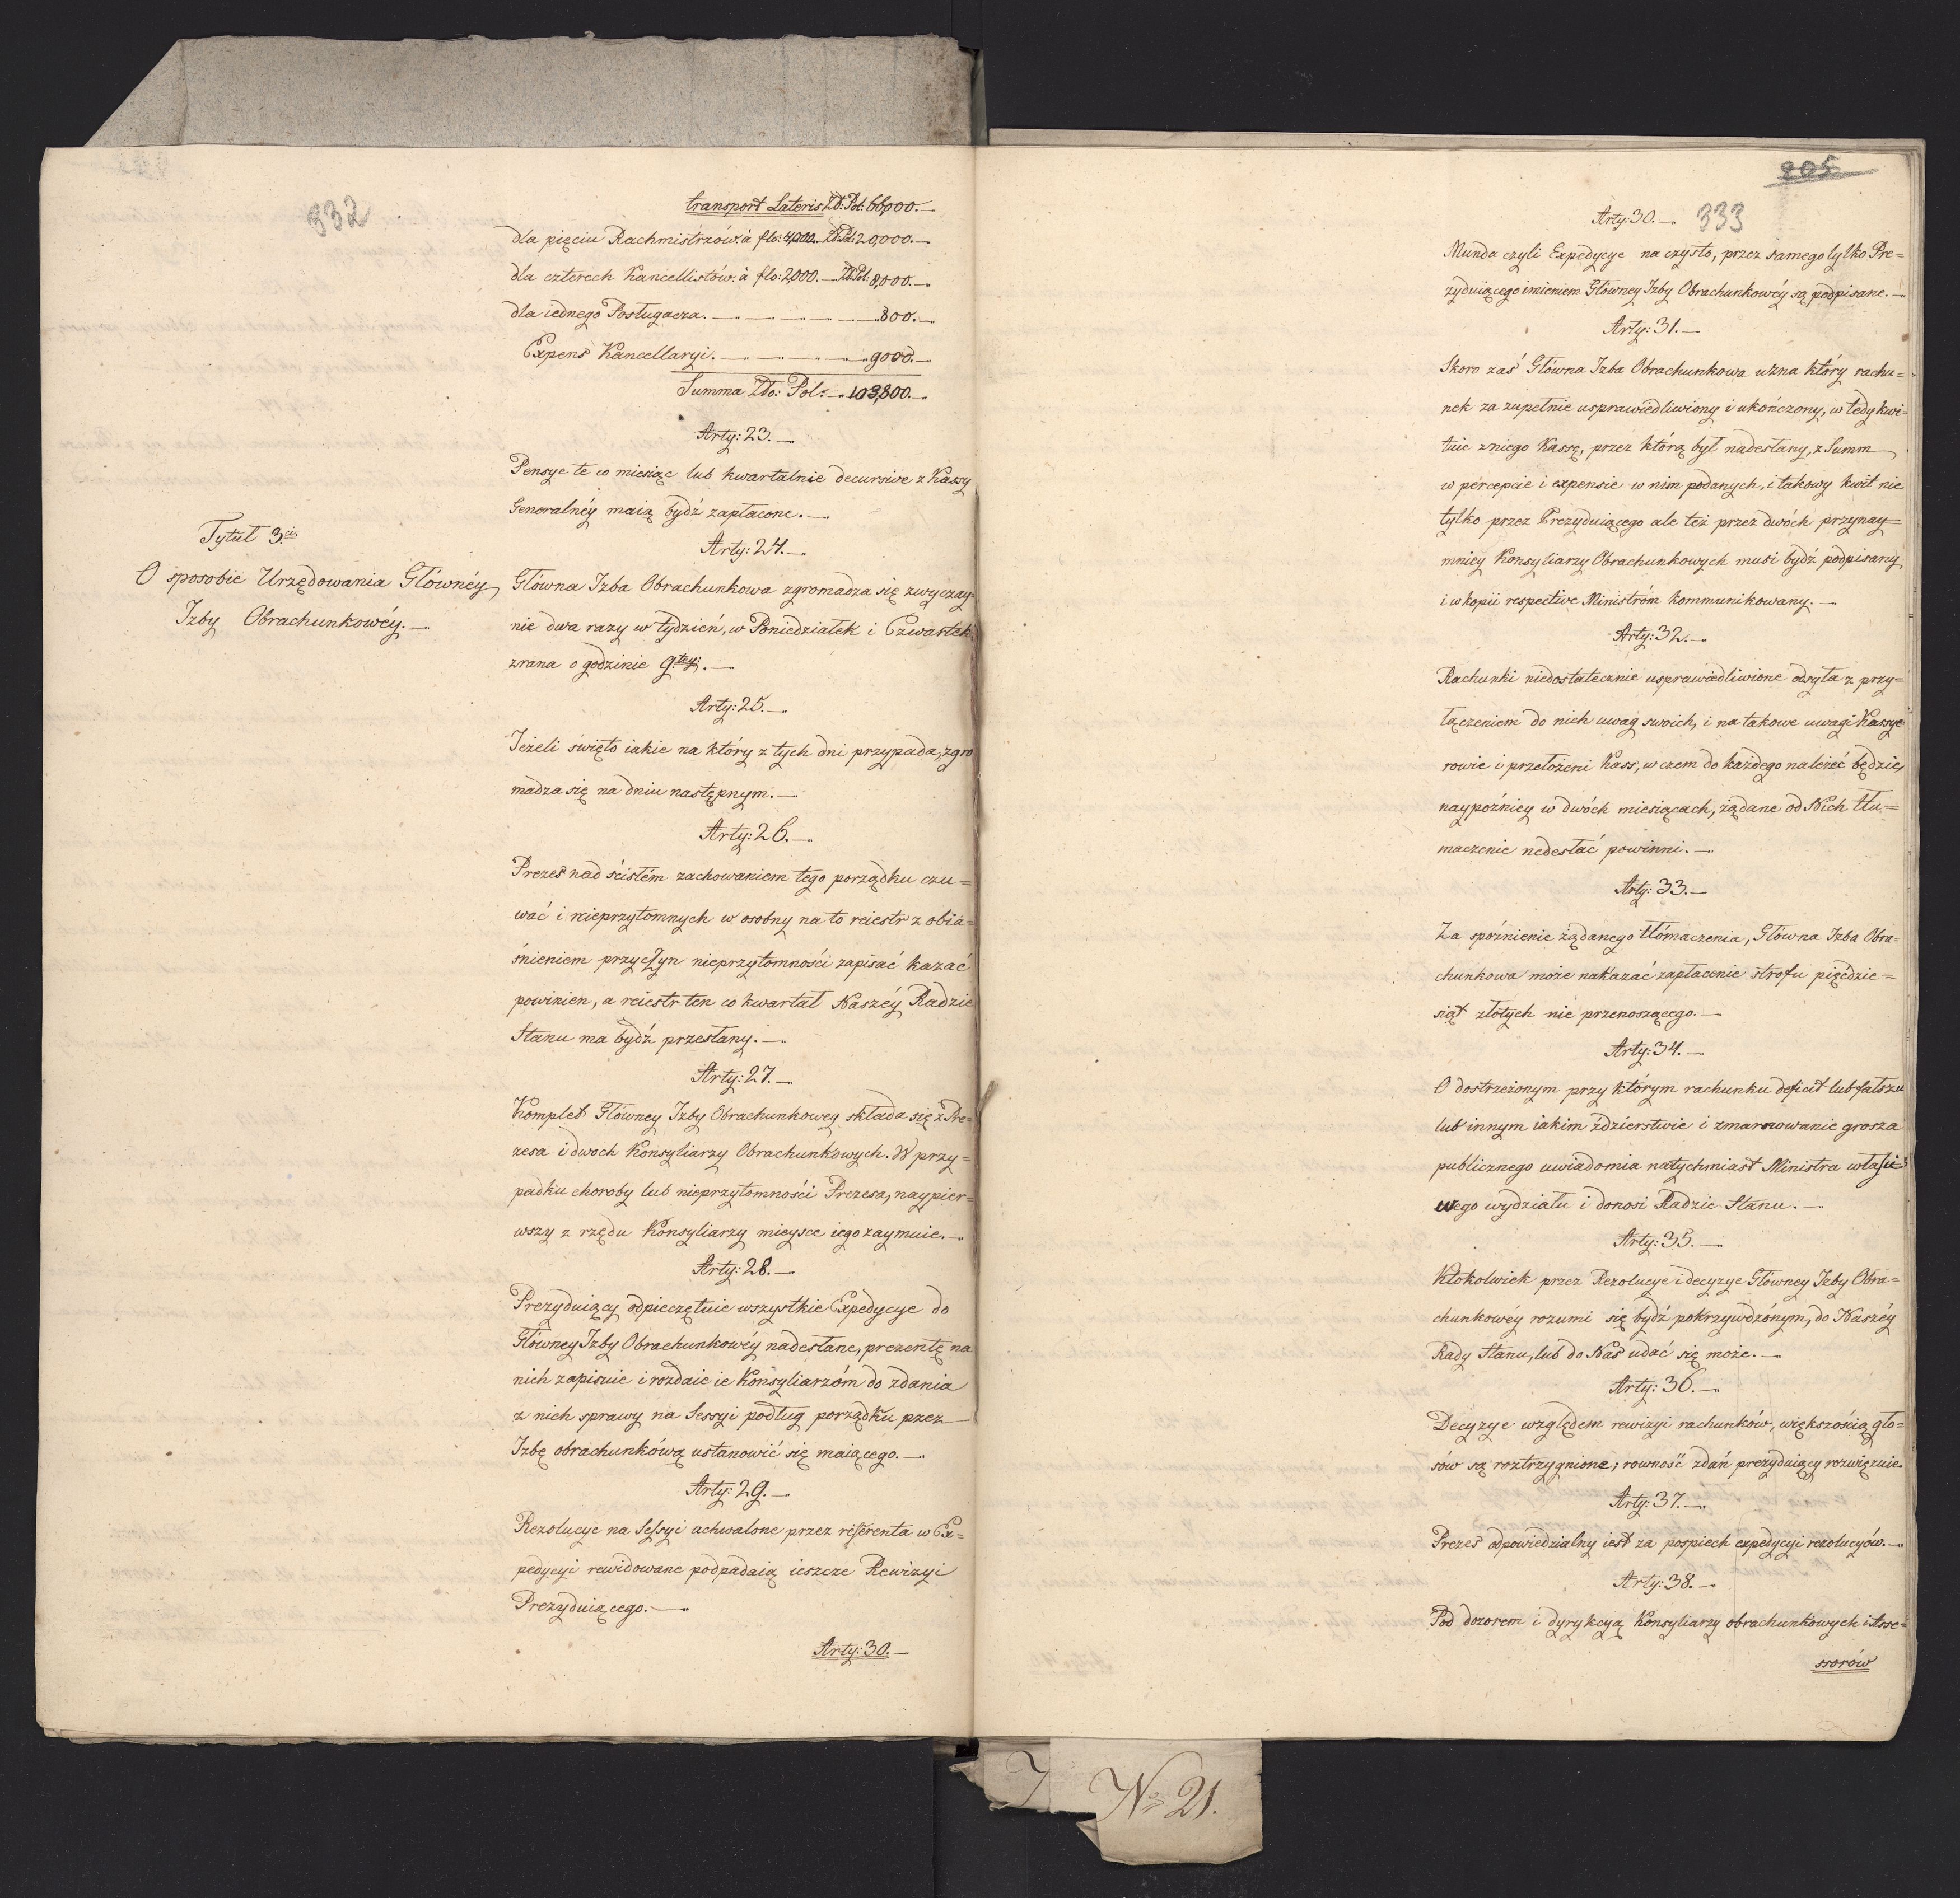 332
transport Lateris Zł: Pol: 66,000.—
dla pięciu Rachmistrzów. à flo: 4,000. Zł Pol: 20,000.—
dla czterech Kancellistów. à flo: 2,000.— Zł Pol: 8,000.—
dla iednego Posługacza. — — — — — 800.—
Expens Kancellaryi. — — — — 9000.—
Summa Zło: Pol: — 103,800.—
Arty: 23.—
Pensye te co miesiąc lub kwartalnie decursive z Kassy
Generalnéy maią bydź zapłacone.—
Tytuł 3ci
O sposobie Urzędowania Głównéy
Izby Obrachunkowéy.—
Arty: 24.—
Główna Izba Obrachunkowa zgromadza się zwyczay-
nie dwa razy w tydzień, w Poniedziałek i Czwartek
zrana o godzinie 9.tey.—
Arty: 25.—
Jeżeli święto iakie na który z tych dni przypada, zgro
madza się na dniu następnym.—
Arty: 26.—
Prezes nad ścisłém zachowaniem tego porządku czu=
wać i nieprzytomnych w osobny na to reiestr z obia=
śnieniem przyczyn nieprzytomności zapisać kazać
powinien, a reiestr ten co kwartał Naszéy Radzie
Stanu ma bydź przesłany.—
Arty: 27.—
Komplet Główney Izby Obrachunkowey składa się z Pre=
zesa i dwoch Konsyliarzy Obrachunkowych. W przy=
padku choroby lub nieprzytomności Prezesa, naypier=
wszy z rzędu Konsyliarzy mieysce iego zaymuie.—
Arty: 28.—
Prezyduiący odpieczętuie wszystkie Expedycye do
Główney Izby Obrachunkowéy nadesłane, prezentę na
nich zapisuie i rozdaie ie Konsyliarzóm do zdania
z nich sprawy na Sessyi podług porządku przez
Izbę obrachunkówą ustanowić się maiącego.—
Arty: 29.—
Rezolucye na Sessyi uchwalone przez referenta w Ex=
pedycyi rewidowane podpadaią ieszcze Rewizyi
Prezyduiącego.—
Arty: 30.—
205
333
Arty: 30.—
Munda czyli Expedycye na czysto, przez samego tylko Pre=
zyduiącego imieniem Główney Izby Obrachunkowéy są podpisane.—
Arty: 31.—
Skoro zaś Główna Izba Obrachunkowa uzna który rachu=
nek za zupełnie usprawiedliwiony i ukończony, w tedy kwi=
tuie z niego Kassę, przez którą był nadesłany, z Summ
w percepcie i expensie w nim podanych, i takowy kwit nie
tylko przez Prezyduiącego ale też przez dwóch przynay=
mniey Konsyliarzy Obrachunkowych musi bydź podpisany
i w kopii respective Ministróm kommunikowany.—
Arty: 32.—
Rachunki niedostatecznie usprawiedliwione odsyła z przy=
łączeniem do nich uwag swoich, i na takowe uwagi Kassye
rowie i przełożeni Kass, w czem do każdego należeć będzie,
naypoźniey w dwóch miesiącach, żądane od Nich tłu=
maczenie nedesłać powinni.—
Arty: 33.—
Za spóźnienie żądanego tłómaczenia, Główna Izba Obra=
chunkowa może nakazać zapłacenie strofu pięćdzie=
siąt złotych nie przenoszącego.—
Arty: 34.—
O dostrzeżonym przy którym rachunku deficit lub fałszu
lub innym iakim zdzierstwie i zmarnowanie grosza
publicznego uwiadomia natychmiast Ministra właści
wego wydziału i donosi Radzie Stanu.—
Arty: 35.—
Ktokolwiek przez Rezolucye i decyzye Główney Izby Obra=
chunkowéy rozumi się bydź pokrzywdzónym, do Naszéy
Rady Stanu, lub do Nas udać się może.—
Arty: 36.—
Decyzye względem rewizyi rachunków, większością gło=
sów są roztrzygnione; rowność zdań prezyduiący rozwięzuie.
Arty: 37.—
Prezes odpowiedzialny iest za pospiech expedycyi rezolucyów.—
Arty: 38.—
Pod dozorem i dyrykcyą Konsyliarzy obrachunkowych i Asse=
ssorów
No 21.